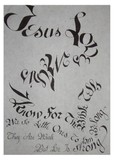 Jesus Lov
es Me
This I
Know For The Bible Tells Me So
Little Ones To Him Belong
They Are Weak
But He Is Strong